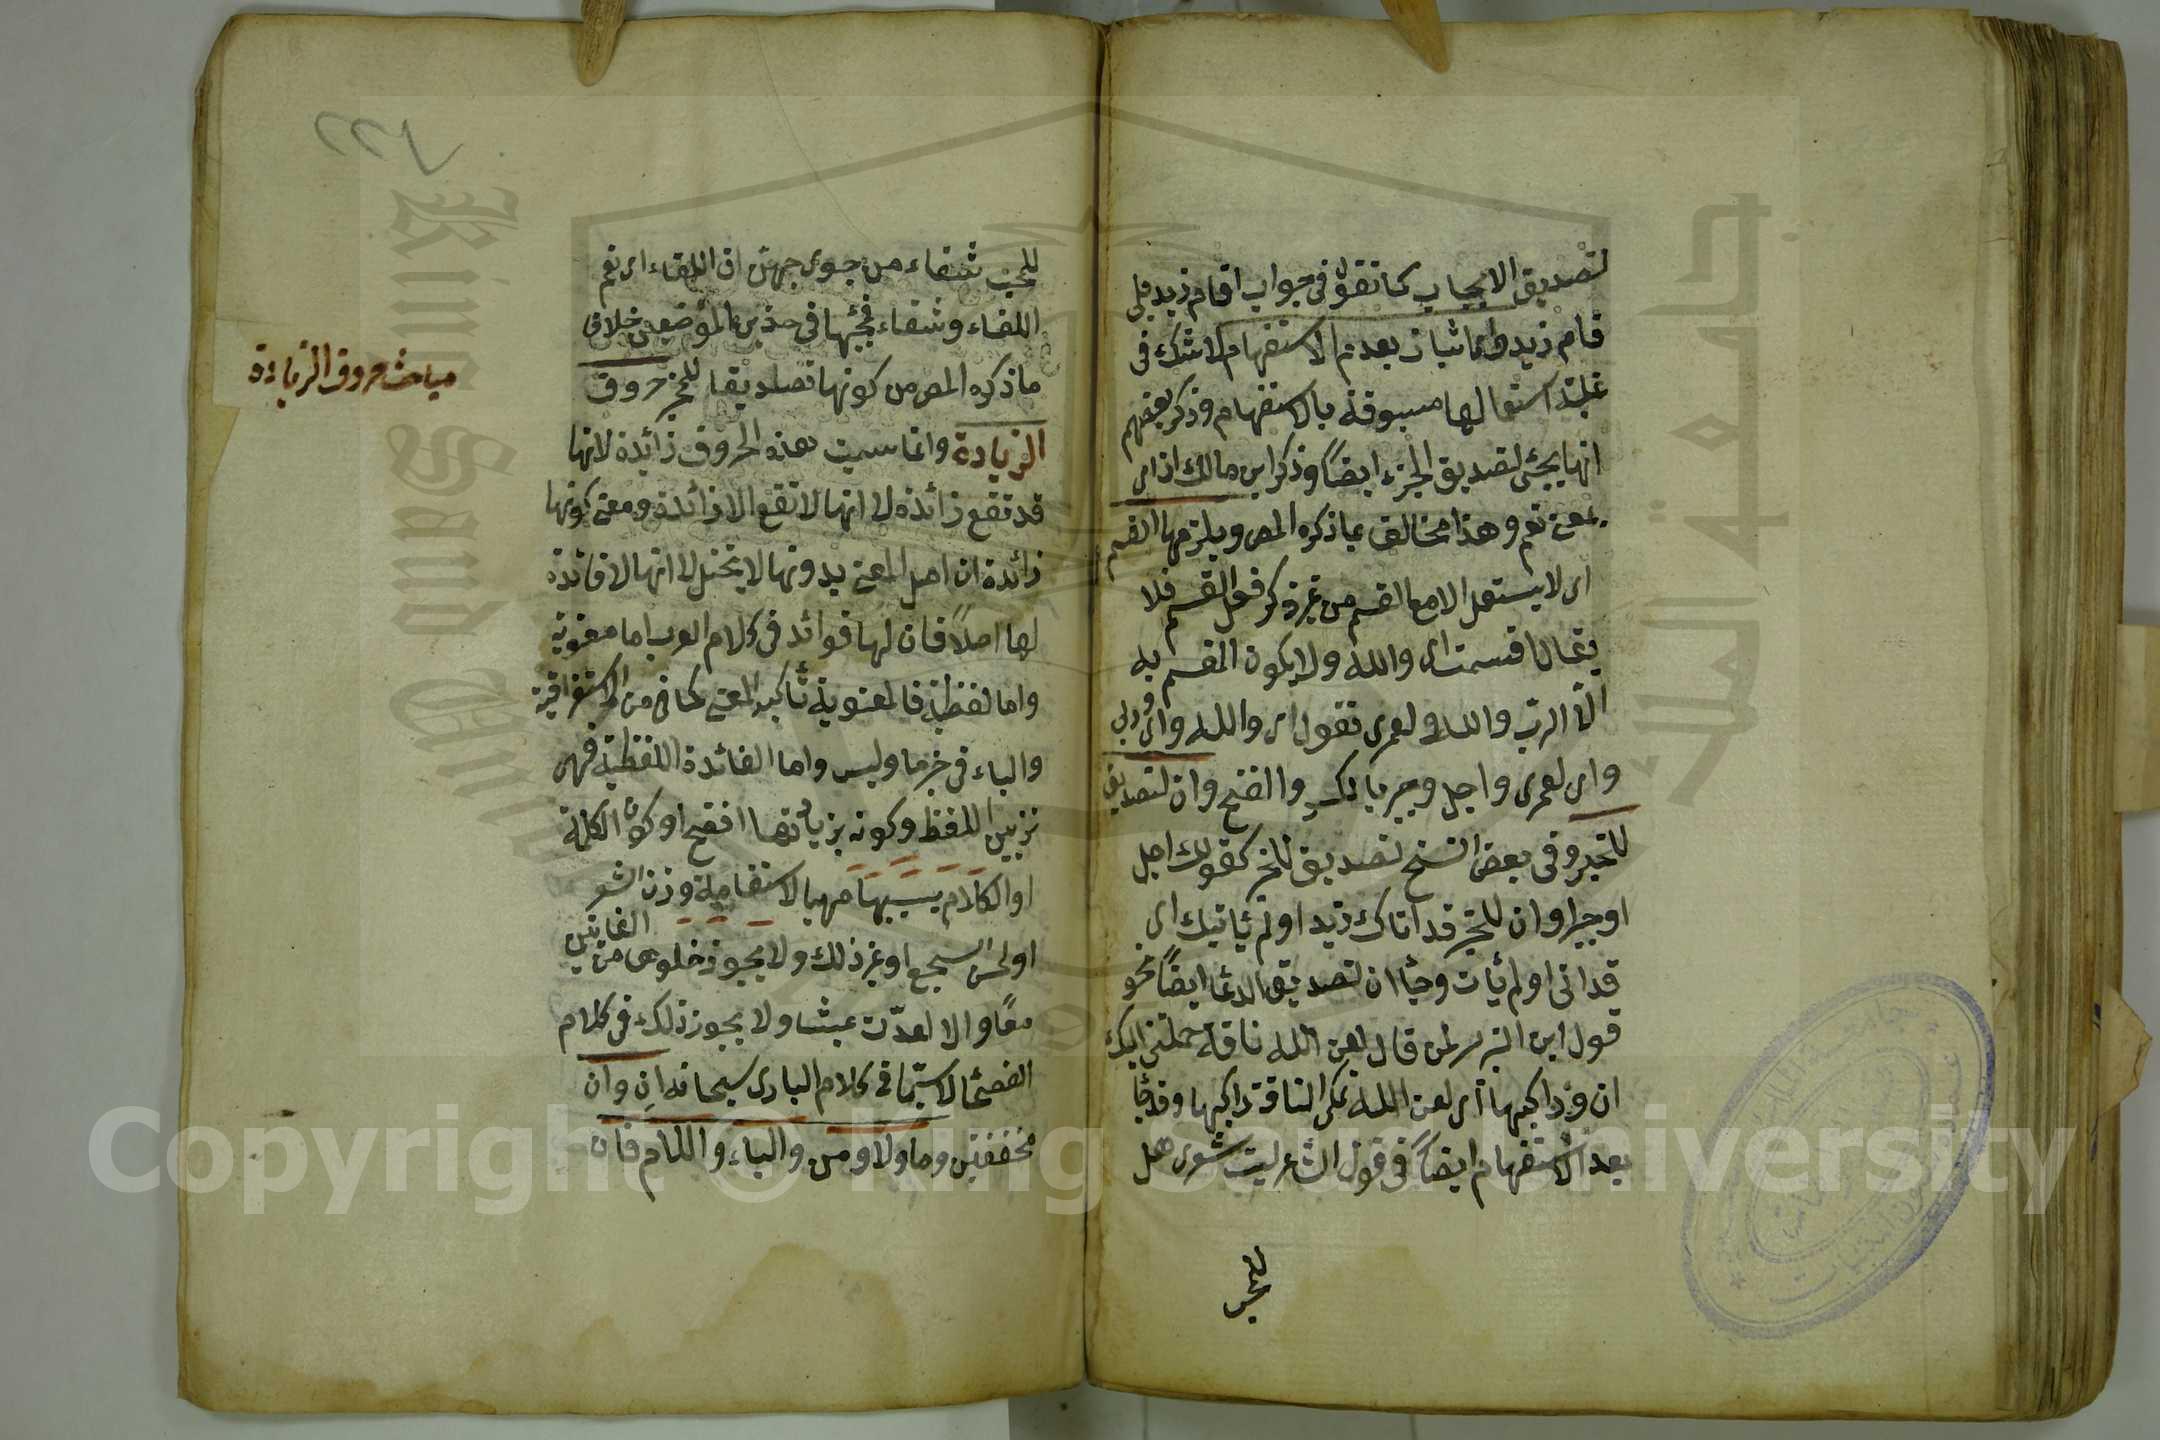 لتصديق الايجاب كما تقول في جواب اقام زيد بلى
قام زيد واى اثبات بعد الاستفهام لا شك في
غلبة استعمالها مسبوقة بالاستفهام وذكر بعضهم
انها يجئ لتصديق الخبر ايضاً وذكر ابن مالك ان اى
بمعنى نعم وهذا مخالف لما ذكره المص ويلزمها القسم
اى لا يستعمل الا مع القسم من غير ذكر فعل القسم فلا
يقال اقسمت اى والله ولا يكون المقسم به
الا الرب والله ولعمرى تقول اى والله واى وربى
واى لعمرى واجل وجير بالكسر والفتح وان لتصديق
للمخبر وفى بعض النسخ تصديق للخبر كقولك اجل
او جير او ان للمخبر قد اتاك زيد او لم يأتيك اى
قد اتى او لم يأت وجأ ان لتصديق الدعا ايضاً نحو
قول ابن الزبير لمن قال لعن الله ناقة حملتنى اليك
ان وراكبها اى لعن الله تلك الناقة وراكبها وقد جأ
بعد الاستفهام ايضاً فى قول الشاعر ليت شعرى هل
للمحب
١٢٢
للمحب شفاء من جوى حبهن ان اللقاء اى نعم
اللقاء وشفاء فمجيئها فى هذين الموضعين خلاف
ما ذكره المص من كونها تصديقا للخبر حروف
الزيادة وانما سميت هذه الحروف زائدة لانها
قد تقع زائدة لا انها لا تقع الا زائدة ومعنى كونها
زائدة ان اصل المعنى بدونها لا يختل لا انها لا فائدة
لها اصلاً فان لها فوائد فى كلام العرب اما معنوية
واما لفظية فالمعنوية تأكيد المعنى كما فى من الاستغراقية
والباء فى خبر ما وليس واما الفائدة اللفظية فهى
تزيين اللفظ وكونه بزيادتها افصح او كون الكلمة
او الكلام بسببها مهيا لاستقامة وزن الشعر
او لحسن السجع او غير ذلك ولا يجوز خلوها من الفائدتين
معًا والا لعدّت عبثا ولا يجوز ذلك فى كلام
الفصحا لا سيّما فى كلام البارى سبحانه انِ وان
مخففتين وما ولا ومن والباء واللام فان
مباحث حروف الزيادة
Copyright © King Saud University
King Saud University